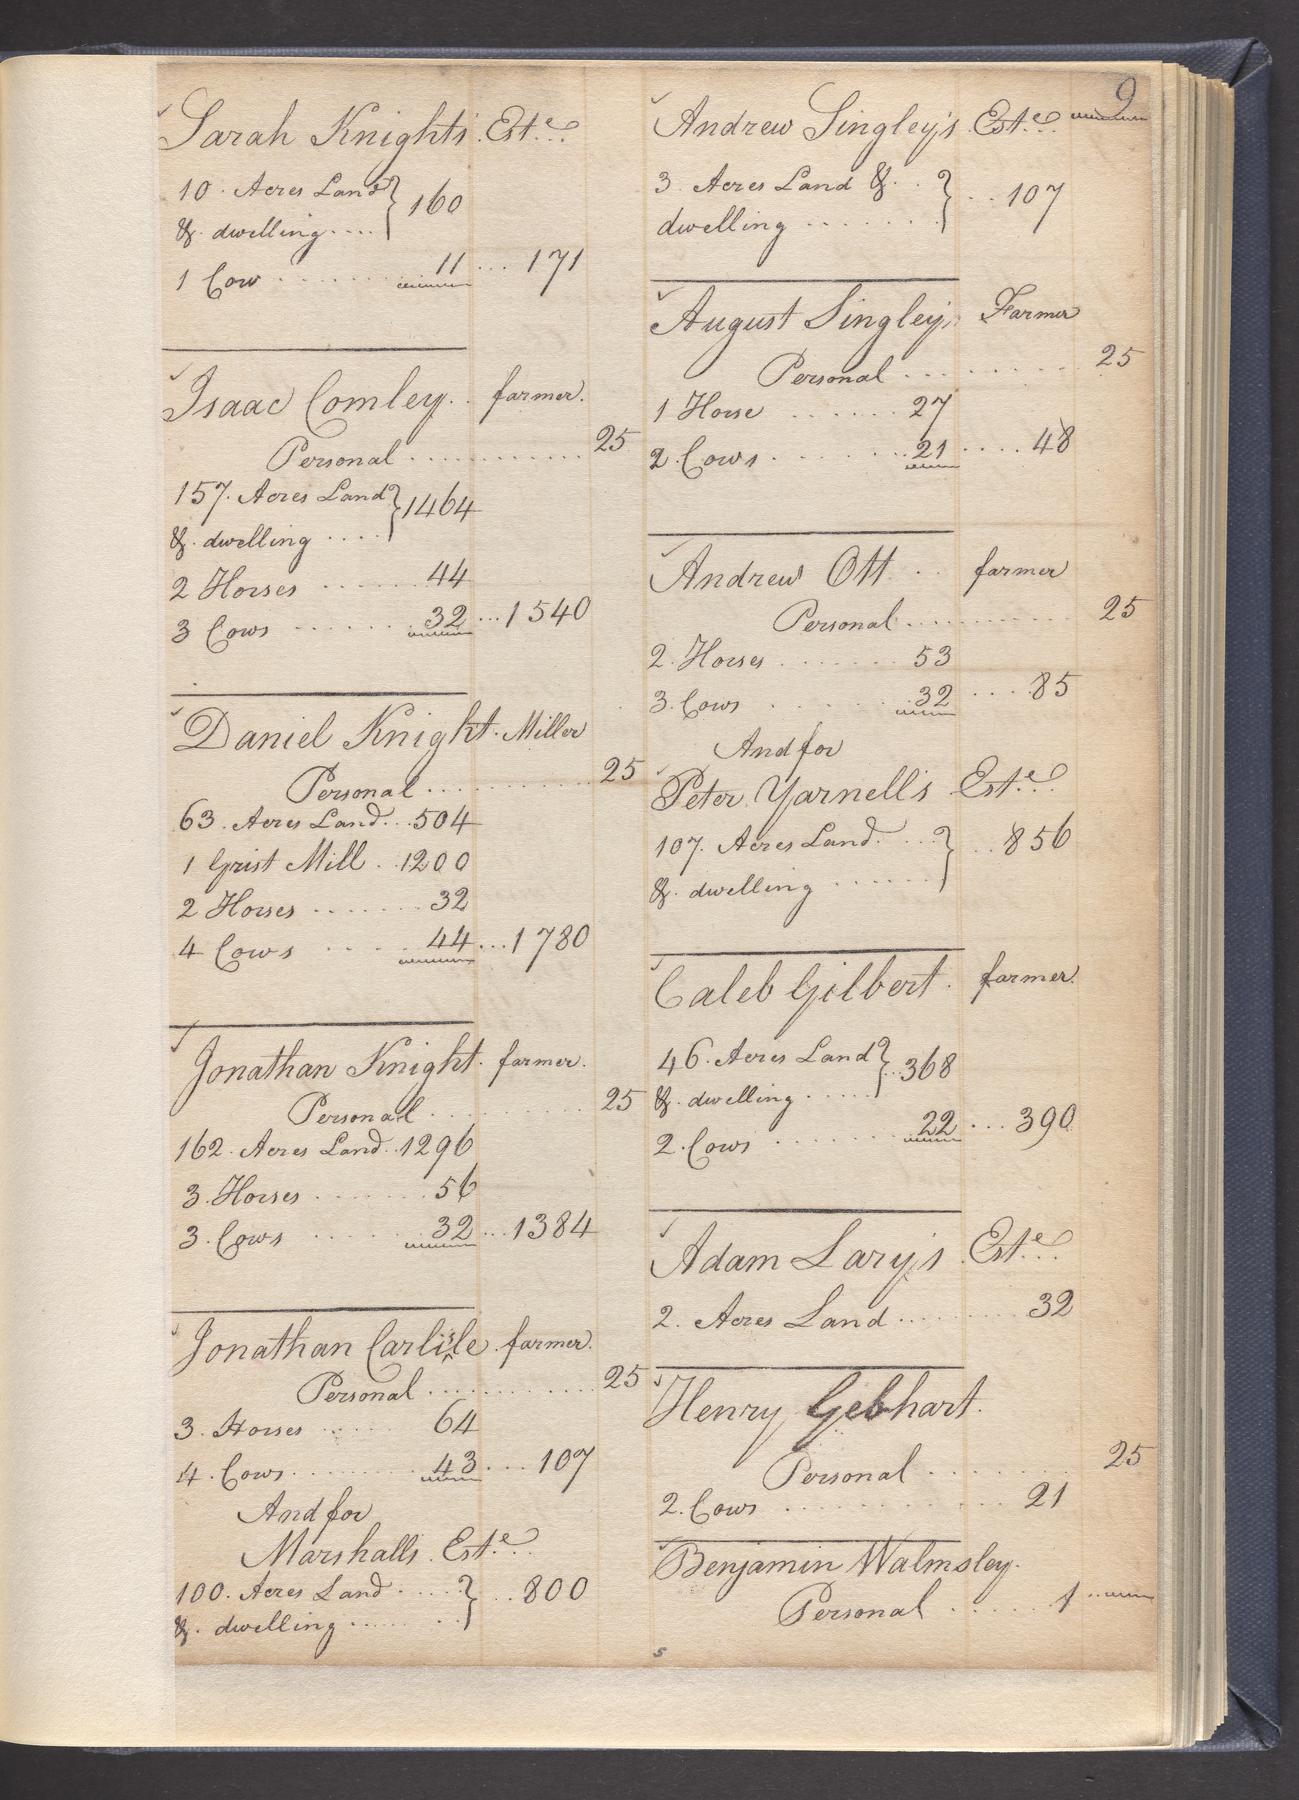 9
Sarah Knights Est.e
10 Acres Land } 160
&. dwelling ....
1 Cow ........ 11 ... 171
Isaac Comley .. farmer.
Personal ............ 25
157. Acres Land } 1464
&. dwelling ....
2 Horses ...... 44
3 Cows ....... 32 ... 1540
Daniel Knight. Miller
Personal ............ 25
63. Acres Land... 504
1 Grist Mill .. 1200
2 Horses ....... 32
4 Cows ..... 44 ... 1780
Jonathan Knight. farmer.
Personal ............ 25
162. Acres Land.. 1296
3. Horses ....... 56
3. Cows ....... 32 ... 1384
Jonathan Carlisle. farmer.
Personal ............ 25
3. Horses ...... 64
4. Cows ........ 43 ... 107
And for
Marshalls. Est.e
100. Acres Land ..... } .. 800
&. dwelling ........
Andrew Singley's Est.e
3. Acres Land &. . } ... 107
dwelling ........
August Singley, Farmer
Personal .......... 25
1 Horse ....... 27
2. Cows ....... 21 .... 48
Andrew Ott .. farmer
Personal ............ 25
2. Horses ....... 53
3. Cows ....... 32 .... 85
And for
Peter Yarnell's Est.e
107. Acres Land. ... } .. 856
&. dwelling ......
Caleb Gilbert. farmer.
46. Acres Land } .. 368
&. dwelling .....
2. Cows ........ 22 ... 390
Adam Lary's Est.e
2. Acres Land ........ 32
Henry Gebhart.
Personal ........ 25
2. Cows ............ 21
Benjamin Walmsley.
Personal ...... 1
5